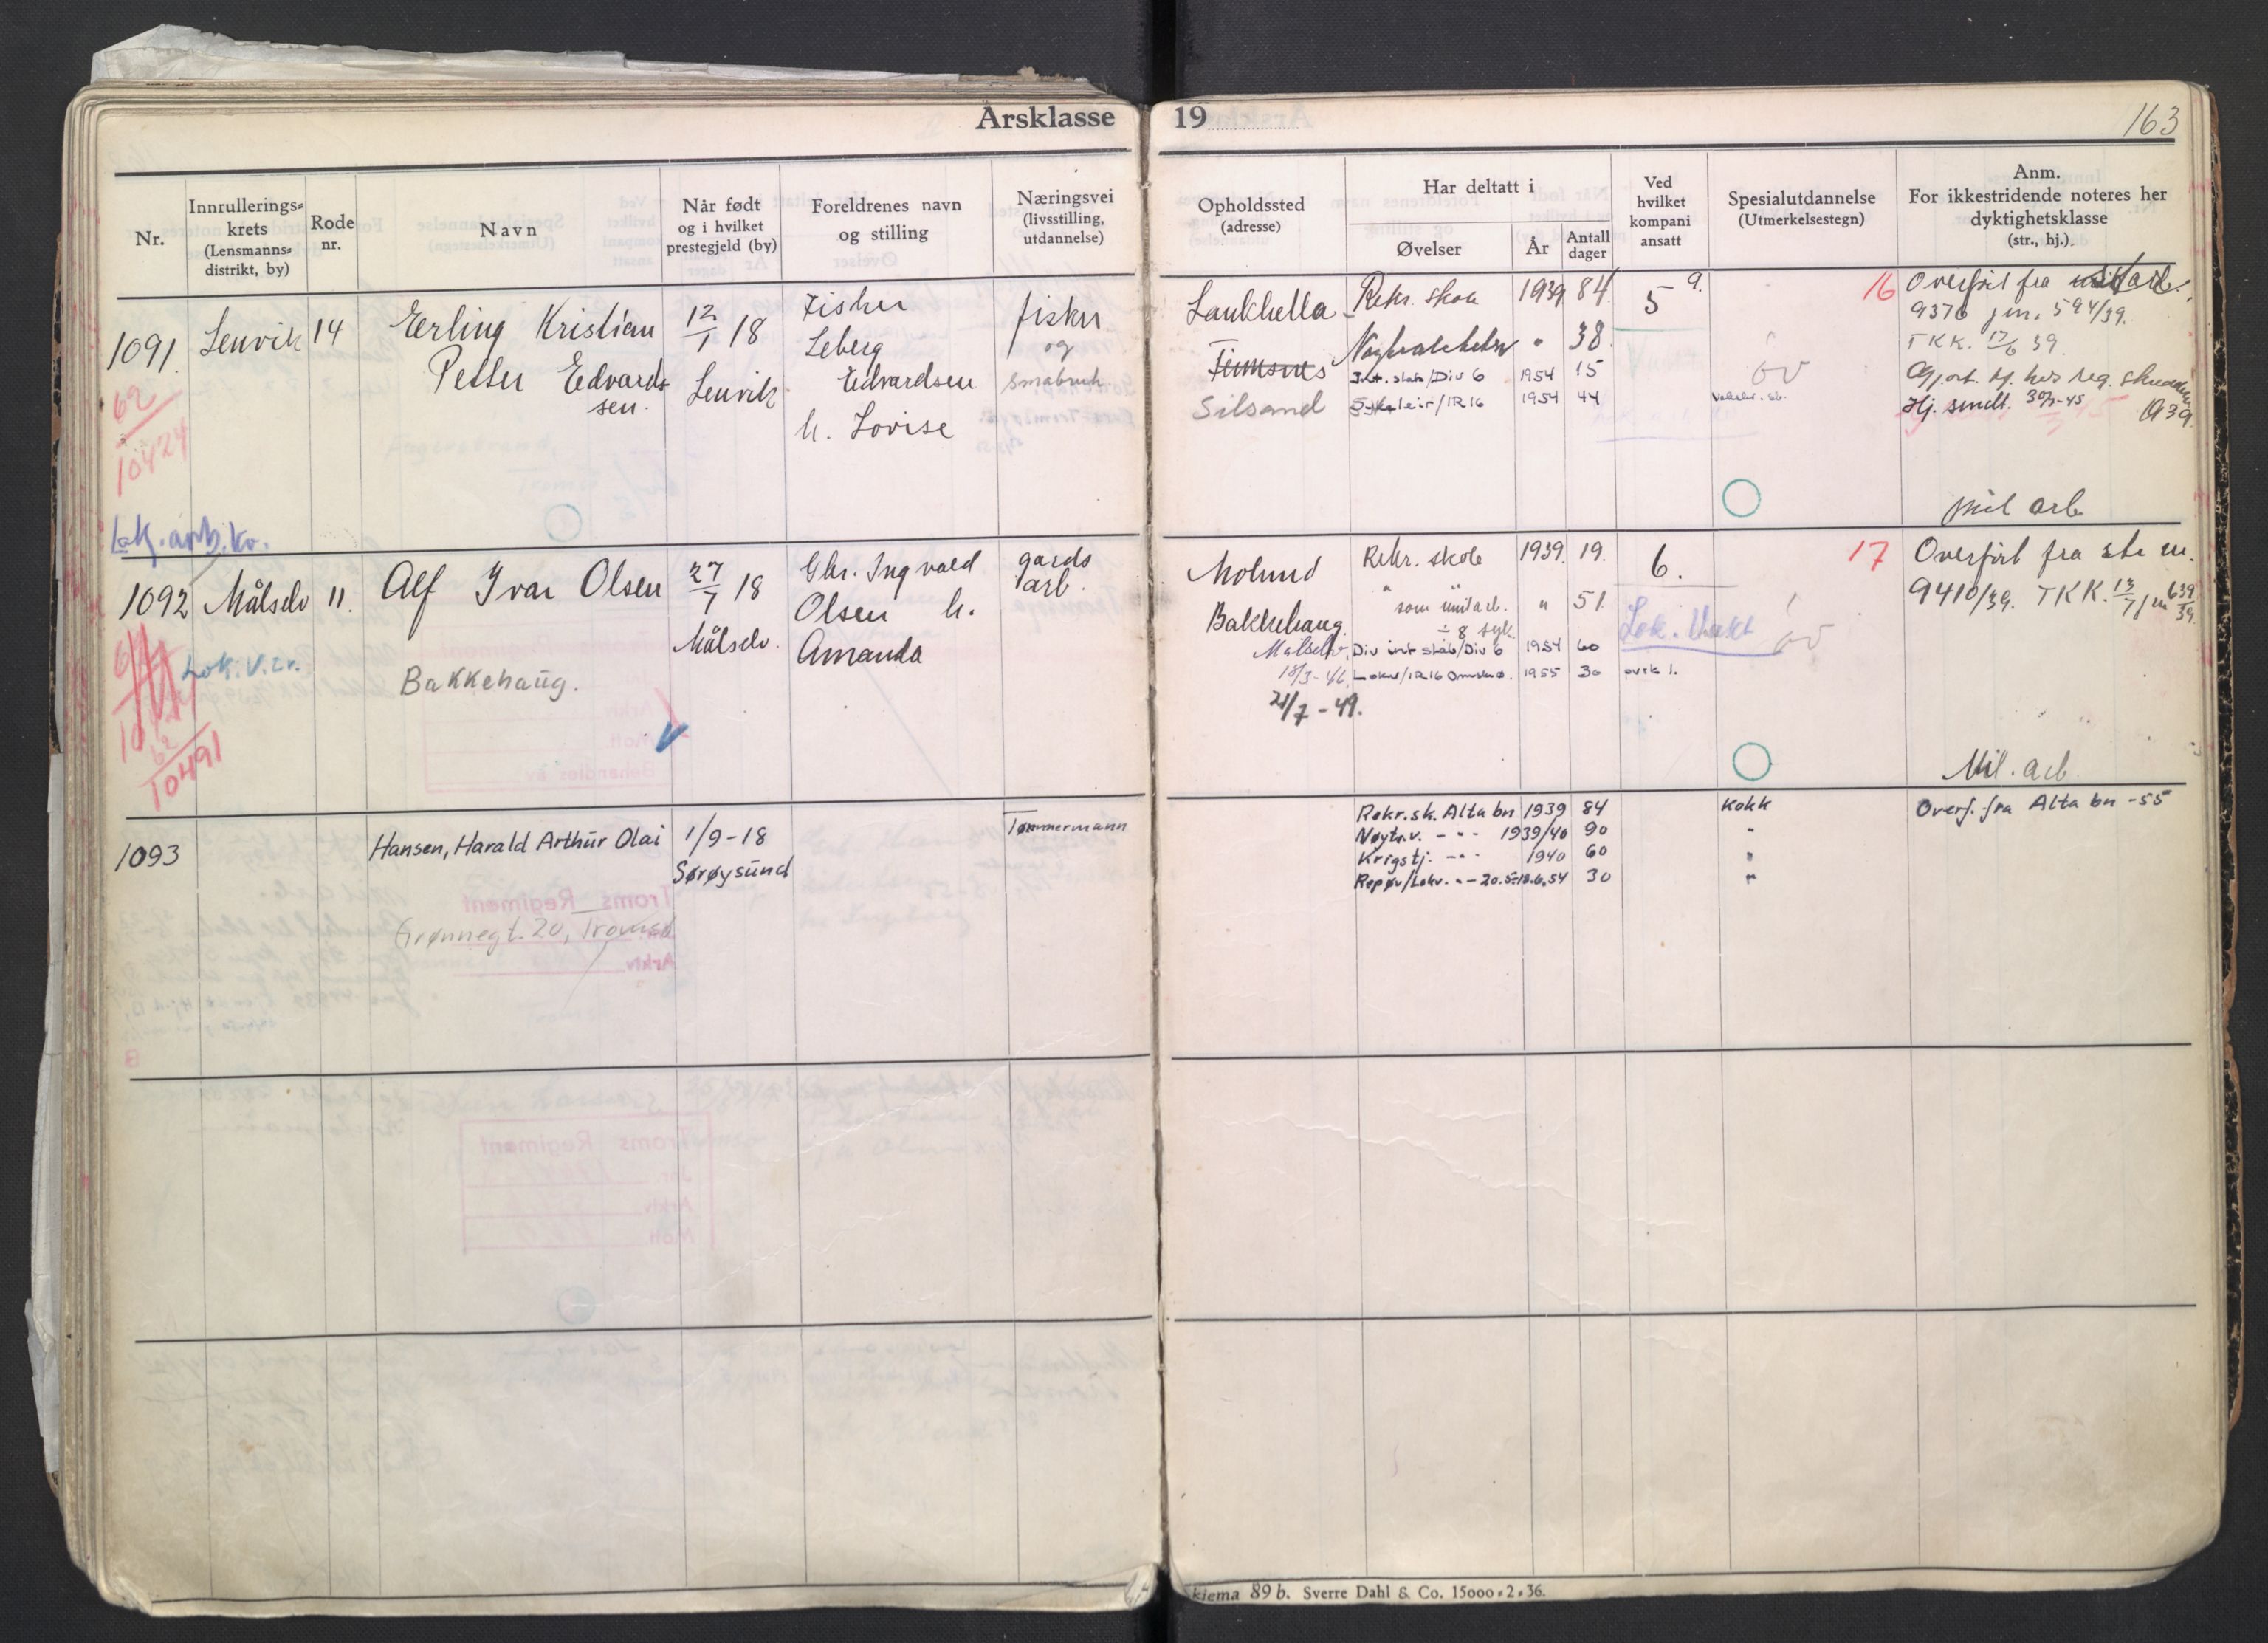 Årsklasse 19
163
Nr.
Innrullerings-
krets
(Lensmanns-
distrikt, by)
Rode
nr.
Navn
Når født
og i hvilket
prestegjeld (by)
Foreldrenes navn
og stilling
Næringsvei
(livsstilling,
utdannelse)
Opholdssted
(adresse)
Har deltatt i
Øvelser
År
Antall
dager
Ved
hvilket
kompani
ansatt
Spesialutdannelse
(Utmerkelsestegn)
Anm.
For ikkestridende noteres her
dyktighetsklasse
(str., hj.)
1091
62
10424
Lenvik
14
Erling Kristian
Petter Edvard-
sen.
12/1 18
Lenvik
Fisker
Leberg
Edvardsen
h. Lovise
fisker
og
småbruk.
Laukhella
Finnsnes
Silsand
Rekr. skole 1939 84
Nøytralitetsv " 38
Int. stab/Div 6 1954 15
/IR 16 1954 44
5
9.
øv
16
Overført fra
9376 jnr. 594/39.
TKK. 17/6 39.
1939
Hj. sendt. 30/7-45
mil arb
Lok. arb. ko.
1092
Målselv
11.
Lok. V.
62
10491
Alf Ivar Olsen
Bakkehaug.
27/7 18
Målselv.
Chr. Ingvald
Olsen h.
Amanda
gards
arb.
Molund
Bakkehaug.
Målselv,
18/3-46
21/7-49.
Rekr. skole 1939. 19.
" som mil arb. " 51
÷ 8 syk
Div int stab/Div 6 1954 60
Lokv/IR 16 1955 30
6.
Lok. Vakt
øv
17
Overført fra str m.
9410/39. TKK. 13/7 jnr 639/39.
Mil. arb
1093
Hansen, Harald Arthur Olai
Grønnegt. 20, Tromsø
1/9-18
Sørøysund
Tømmermann
Rekr. sk. Alta bn 1939 84
Nøytr. v. - " - 1939/40 90
Krigstj. - " - 1940 60
Repøv/Lokv. - " - 20.5-18.6.54 30
Kokk
"
"
"
Overf. fra Alta bn -55
kjema 89 b. Sverre Dahl & Co. 15000-2-36.